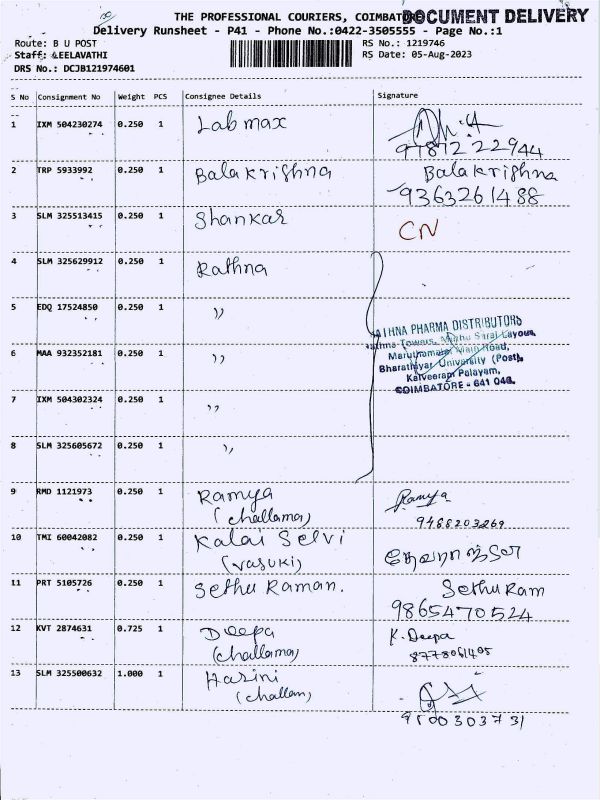 THE PROFESSIONAL COURIERS, COIMBATORE
DOCUMENT DELIVERY
Delivery Runsheet - P41 - Phone No.:0422-3505555 - Page No.:1
Route: B U POST
RS No.: 1219746
Staff: LEELAVATHI
RS Date: 05-Aug-2023
DRS No.: DCJB121974601
S No Consignment No Weight PCS Consignee Details Signature
1 IXM 504230274 0.250 1 Labmax
2 TRP 5933992 0.250 1 Balakrishna Balakrishna
9363261488
3 SLM 325513415 0.250 1 Shankar CN
4 SLM 325629912 0.250 1 Rathna
5 EDQ 17524850 0.250 1 ,,
6 MAA 932352181 0.250 1 ,,
7 IXM 504302324 0.250 1 ,,
8 SLM 325605672 0.250 1 ,,
PHARMA DISTRIBUTORS
Towers,
Maruthamalai Main Road,
Bharathiyar University (Post),
Kalveerampalayam,
COIMBATORE - 641 046.
9 RMD 1121973 0.250 1 Ramya Ramya
(challama) 9488203269
10 TMI 60042082 0.250 1 Kalai Selvi
(vasuki)
11 PRT 5105726 0.250 1 Sethu Raman. Sethu Ram
9865470524
12 KVT 2874631 0.725 1 Deepa K. Deepa
(challama) 8778061405
13 SLM 325500632 1.000 1 Harini
(challam)
9500303731